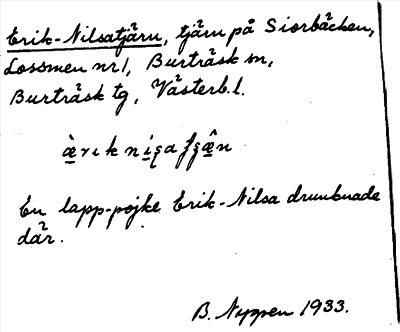 Erik-Nilsatjärn, tjärn på Siorbäcken,
Lossmen nr 1, Burträsk sn,
Burträsk tg, Västerb. l.
En lapp-pojke Erik-Nilsa drunknade
där.
B. Nyppen 1933.